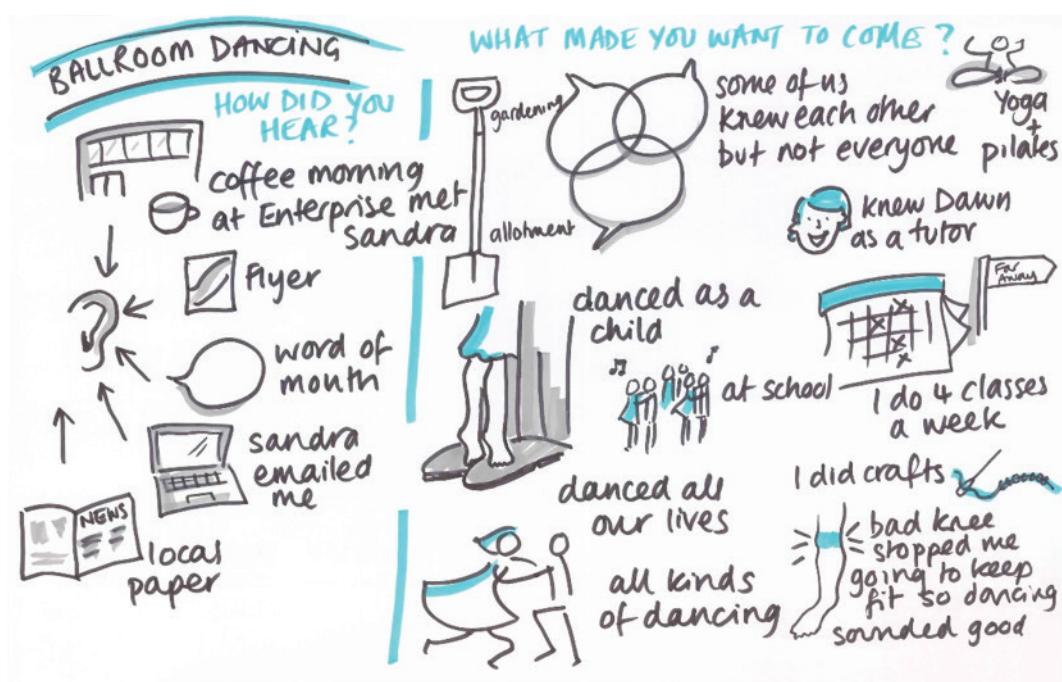 BALLROOM DANCING
HOW DID YOU
HEAR?
coffee morning
at Enterprise met
sandra
flyer
word of
mouth
sandra
emailed
me
NEWS
local
paper
WHAT MADE YOU WANT TO COME?
gardening
allotment
some of us
knew each other
but not everyone
Yoga
+
pilates
knew Dawn
as a tutor
danced as a
child
at school
Far
Away
I do 4 classes
a week
danced all
our lives
I did crafts
all kinds
of dancing
bad knee
stopped me
going to keep
fit so dancing
sounded good